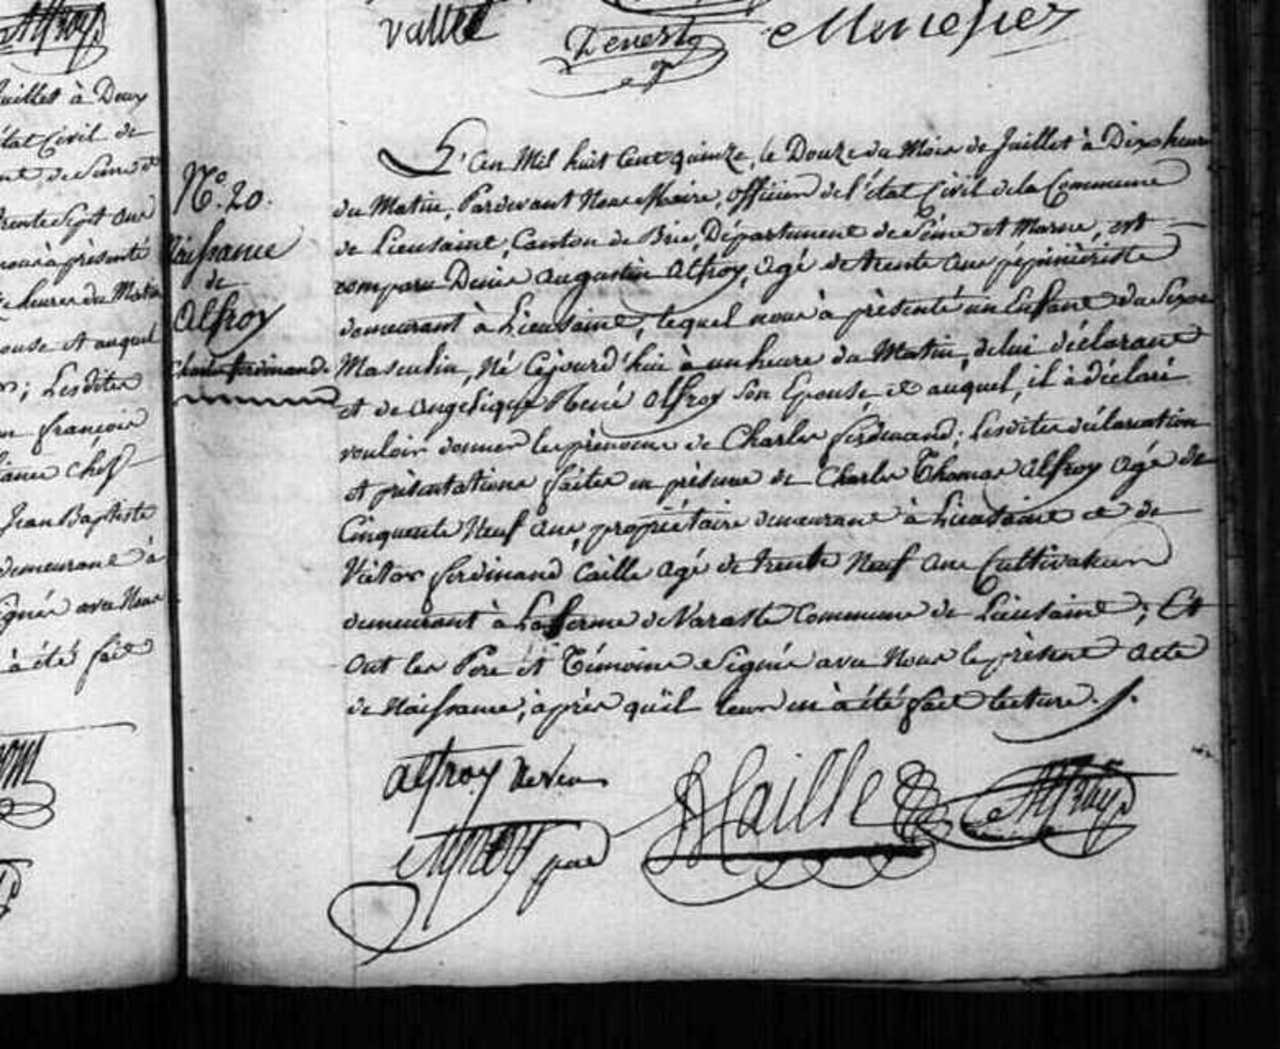 Alfroy
vallet
Denest
Menessier
Juillet à Deux
état Civil de
trente Sept ans
nous à présenté
heures du Matin
Epouse et auquel
; Lesdites
françois
chef
Jean Baptiste
demeurant à
signés avec Nous
à été fait
N.º 20.
Naissance
de
Alfroy
Charles ferdinand.
L'an Mil huit Cent quinze, le Douze du Mois de Juillet à Dix heures
du Matin, Pardevant Nous Maire, officier de l'état Civil de la Commune
de Lieusaint, Canton de Brie, Département de Seine et Marne, est
comparu Denis augustin Alfroy, agé de trente ans pépiniériste
demeurant à Lieusaint, lequel nous à présenté un Enfant du Sexe
Masculin, Né Cejourd'hui à un heure du Matin, de lui déclarant
et de angelique René Alfroy Son Epouse et auquel, il à déclaré
vouloir donner les prénoms de Charles ferdinand; Lesdites déclaration
et présentations faites en présence de Charles Thomas Alfroy agé de
Cinquante Neuf ans, propriétaire demeurant à Lieusaint et de
Victor ferdinand Caille agé de trente Neuf ans Cultivateur
demeurant à La ferme de Varatre Commune de Lieusaint; Et
ont les Pere et Témoins Signés avec Nous le présent acte
de Naissance, après qu'il leur en à été fait lecture.
alfroy neveu
Caille
Alfroy
Alfroy